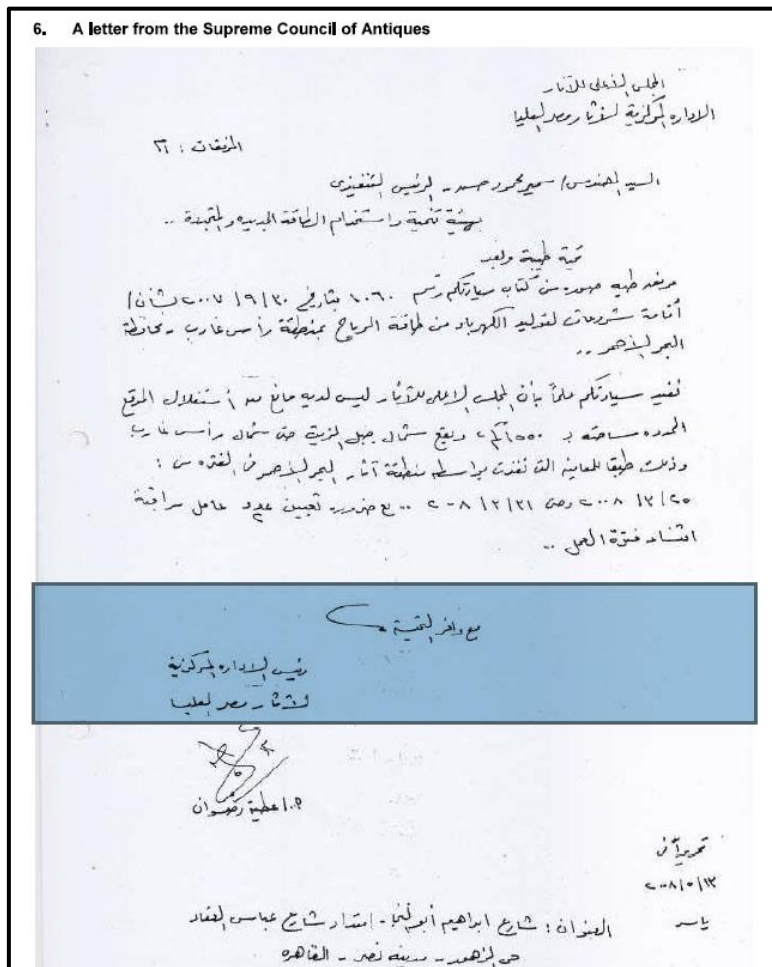 6. A letter from the Supreme Council of Antiques
المجلس الأعلى للآثار
الاداره المركزية لآثار مصر العليا
المرفقات : ٢١
السيد المهندس / سمير محمود حسن - الرئيس التنفيذى
بهيئة تنمية واستخدام الطاقة الجديده والمتجددة ..
تحية طيبة وبعد
مرفق طيه صوره من كتاب سيادتكم رقم ١٠٦٠ بتاريخ ٢٠٠٧/٩/٣٠ بشأن /
أقامة مشروعات لتوليد الكهرباء من طاقة الرياح بمنطقة رأس غارب - محافظة
البحر الأحمر ..
نفيد سيادتكم علماً بأن المجلس الاعلى للآثار ليس لديه مانع من أستغلال الموقع
المحدد مساحته بـ ويقع شمال جبل الزيت حتى شمال رأس غارب
وذلك طبقا للمعاينه التى نفذت بواسطه منطقة آثار البحر الأحمر فى الفتره من :
٢٠٠٨/٣/٢٥ وحتى ٢٠٠٨/٣/٣١ .. مع ضرورة تعيين عدد ٢ عامل مراقبة
اثناء فترة العمل ..
مع وافر التحية
رئيس الاداره المركزية
لآثار مصر العليا
عطية رضوان
تحريرآ فى
٢٠٠٨/٥/١٣
ياسر
العنوان : شارع ابراهيم أبو النجا - امتداد شارع عباس العقاد
حى الزهور - مدينه نصر - القاهره